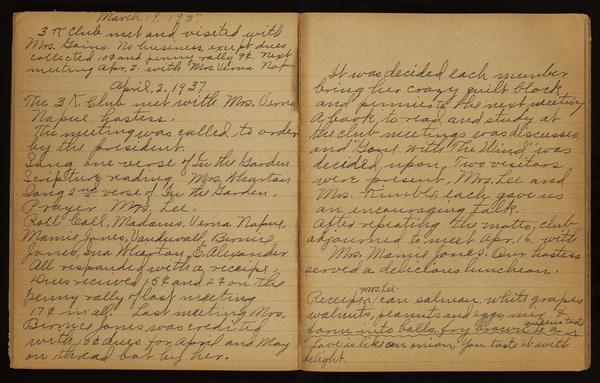 March 19, 193
3 K Club met and visited with
Mrs. Goins. No business, except dues,
collected 10¢ and penny rally 9¢. Next
meeting Apr. 2. with Mrs. Verna Napue
April, 2, 1937
The 3 K. Club met with Mrs. Verna
Napue hostess.
The meeting was called to order
by the president.
Sang one verse of In the Garden.
Scripture reading Mrs. Wharton
Sang 2nd verse of In the Garden.
Prayer Mrs. Lee.
Roll Call, Madams, Verna Napue,
Mamie Jones, Vandervall, Bernice
Jones, Ina Wharton, E. Alexander
All responded with a receipe,
Dues received 15¢ and 2¢ on the
penny rally of last meeting
17¢ in all. Last meeting Mrs.
Bernyce Jones was credited
with 10¢ dues for April and May
on thread bot by her.
It was decided each member
bring her crazy quilt block
and pennies to the next meeting
A book, to read and study at
the club meetings was discussed
and "Gone With The Wind" was
decided upon. Two visitors
were present, Mrs. Lee and
Mrs. Kimble, each gave us
an encouraging talk.
After repeating the motto, club
adjourned to meet Apr. 16, with
Mrs. Mamie Jones. Our hostess
served a delicious luncheon.
Mrs. Lee-
Receipe, can salmon, white grapes
walnuts, peanuts and eggs, mix &
form into balls, fry brown
Love is like an onion, you taste it with
delight.